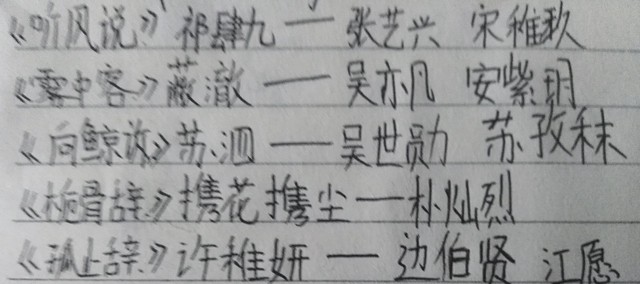 《听风说》祁肆九——张艺兴 宋稚玖
《雾中客》薇澈——吴亦凡 安紫玥
《向鲸诉》苏泗——吴世勋 苏孜秣
《栀骨辞》携花携尘——朴灿烈
《孤上辞》许稚妍——边伯贤 江愿